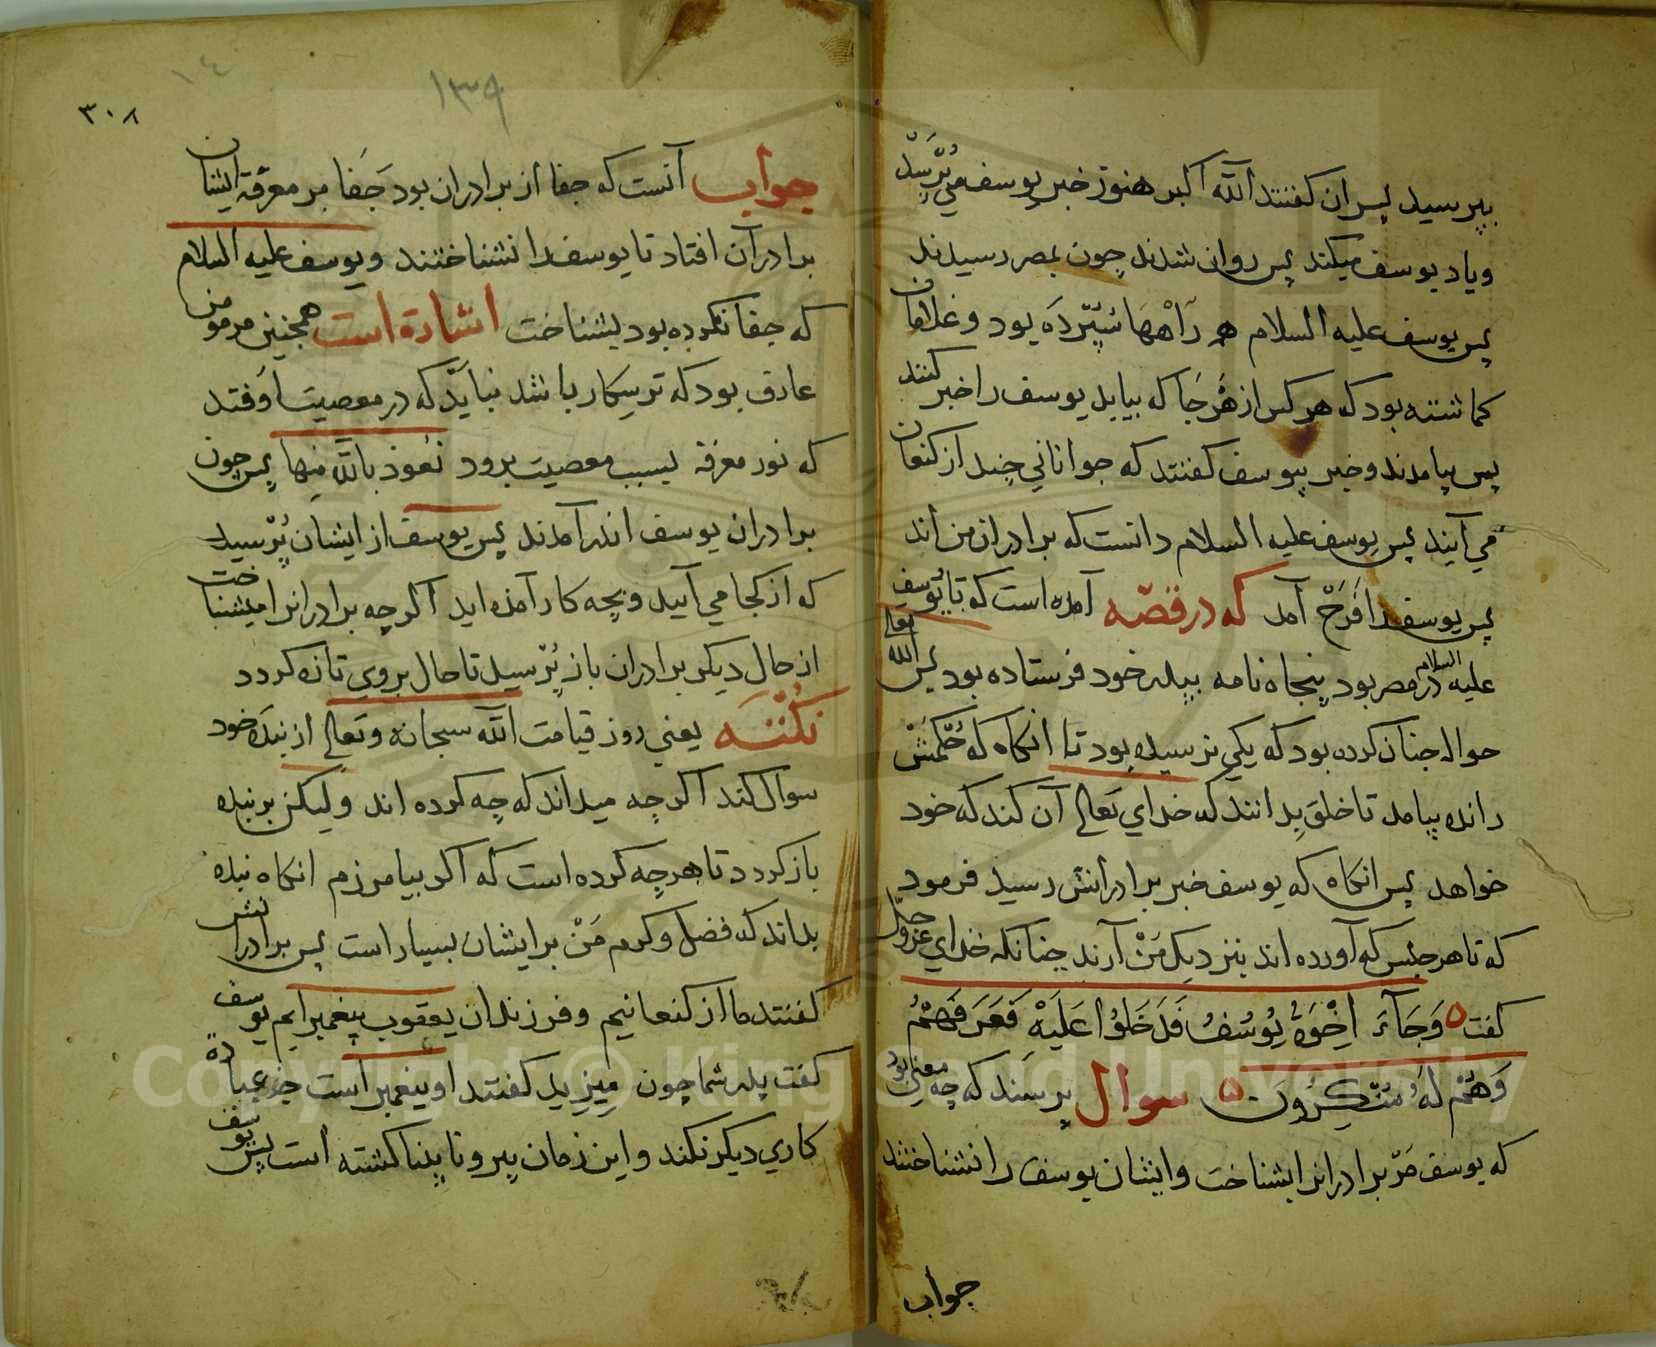 بپرسید پسران کفتند الله اکبر هنوز خبر یوسف می پُرسَد
ویاد یوسف میکند پس روان شدند چون بمصر رسیدند
پس یوسف علیه السلام هر رآهْهَا سُپرْدَه بود و غلامان
کماشته بود که هرکس از هَرجَا که بیاید یوسف را خبر کنند
پس بیامدند و خبر بیوسف کفتند که جوانانی چند از کنعان
می آیند پس یوسف علیه السلام دانست که برادران من اند
پس یوسف را فَرَحْ آمد که در قصّه آمده است که تا یُوسف
علیه السلام در مصر بود پنجاه نامه بپدر خود فرستاده بود پس الله تعالی
حواله چنان کرده بود که یکی نرسیده بود تا انکاه که حُکمَشْ
رانده بیامد تا خلق بدانند که خدای تعالی آن کند که خود
خواهد پس انکاه که یوسف خبر برادرانش رسید فرمود
که تا هرچیس که آورده اند بنزدیک مَنْ آرند چنانکه خدای عزوجل
کفت وَجَآءَ اِخْوَةُ یُوسُفُ فَدَخَلُوا عَلَیْهِ فَعَرَفَهُمْ
وَهُمْ لَهُ مُنْکِرُونَ سوال پرسند که چه معنی بود
که یوسف مَرْ برادرانرا بشناخت وایشان یوسف را نشناختند
جواب
۳۰۸
۱۳۹
۱٤
جواب آنست که جفا از برادران بود جَفا بر معرفة ایشان
برادرآن افتاد تا یوسف را نشناختند و یوسف علیه السلام
که جفا نکرده بود بشناخت اشارة است همچنین مر مومن
عارف بود که ترسکار باشد نبایَد که در معصیت اوفتد
که نور معرفة بسبب معصیت برود نعوذ بالله مِنها پس چون
برادران یوسف اندر آمدند پس یوسف از ایشان پُرْسید
که از کجا می آیید و بچه کار آمده اید اکرچه برادرانرا میشناخت
از حال دیکر برادران باز پُرْسید تا حال بروی تازه کردد
نُکْتَه یعنی روز قیامت الله سبحانه وتعالی از بنده خود
سوال کند اکرچه میداند که چه کرده اند ولیکن بر بنده
باز کردد تا هرچه کرده است که اکر بیامرزم انکاه بنده
بداند که فضل وکرم مَنْ بر ایشان بسیار است پس برادرانش
کفتند ما از کنعانیم و فرزندان یعقوب پیغمبرایم یوسف
کفت پدر شما چون میزید کفتند او پیغمبر است جز عبادة
کاری دیکر نکند و این زمان پیر و نابینا کشته است پس یوسف